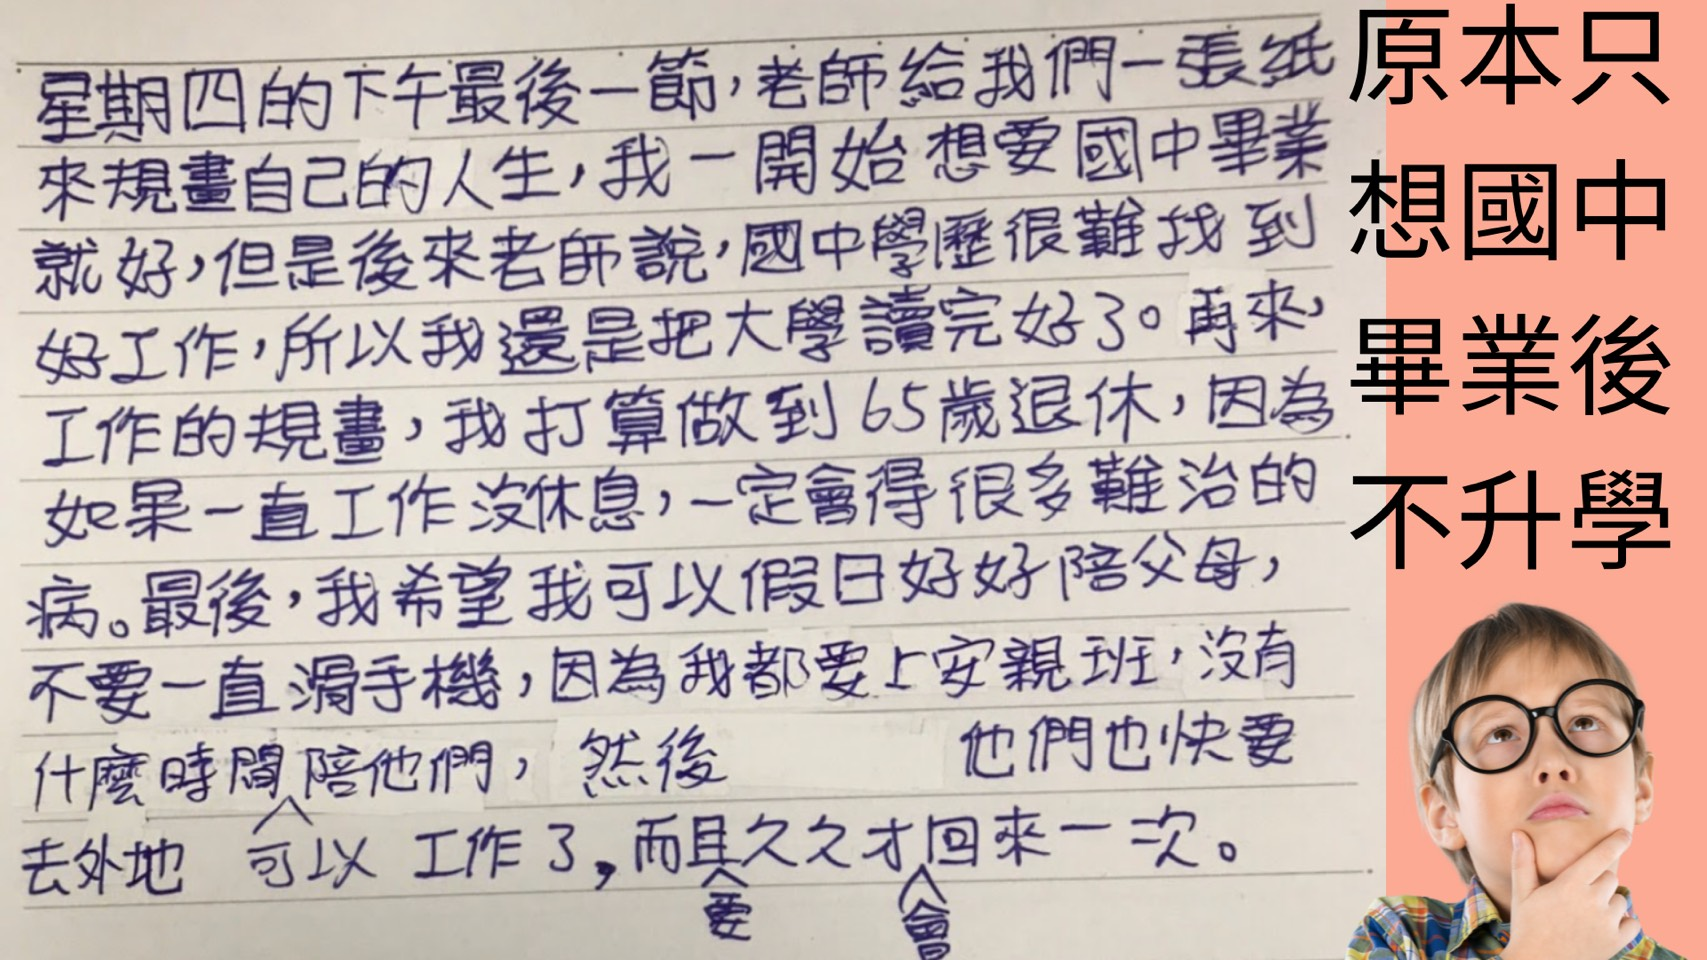 星期四的下午最後一節，老師給我們一張紙
來規畫自己的人生，我一開始想要國中畢業
就好，但是後來老師說，國中學歷很難找到
好工作，所以我還是把大學讀完好了。再來，
工作的規畫，我打算做到65歲退休，因為
如果一直工作沒休息，一定會得很多難治的
病。最後，我希望我可以假日好好陪父母，
不要一直滑手機，因為我都要上安親班，沒有
什麼時間陪他們，然後 他們也快要
去外地 可以 工作了，而且久久才回來一次。
要 會
原本只
想國中
畢業後
不升學